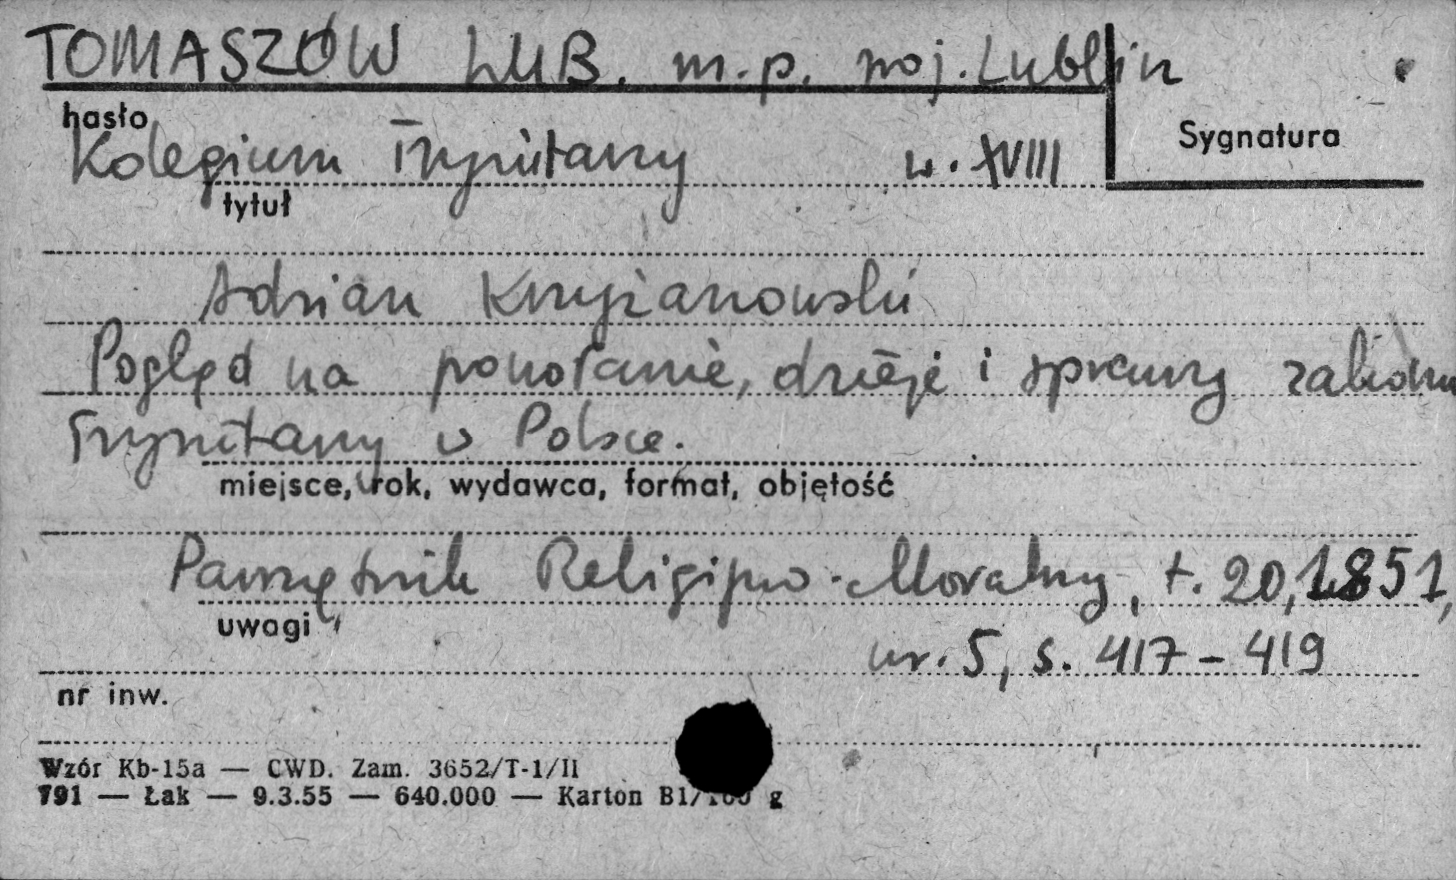 TOMASZÓW LUB. m.p. woj. Lublin
hasło
Sygnatura
Kolegium Trynitarzy w. XVIII
tytuł
Adrian Krzyżanowski
Pogląd na powołanie, dzieje i sprawy zakonu
Trynitarzy w Polsce.
miejsce, rok, wydawca, format, objętość
Pamiętnik Religijno-Moralny, t. 20, 1851,
uwagi
nr. 5, s. 417-419
nr inw.
Wzór Kb-15a — CWD. Zam. 3652/T-1/II
791 — Łak — 9.3.55 — 640.000 — Karton B1/160 g